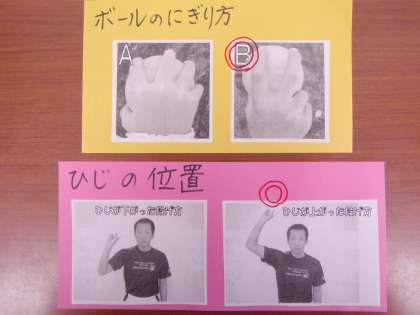 ボールのにぎり方
A
B
ひじの位置
ひじが下がった投げ方
ひじが上がった投げ方